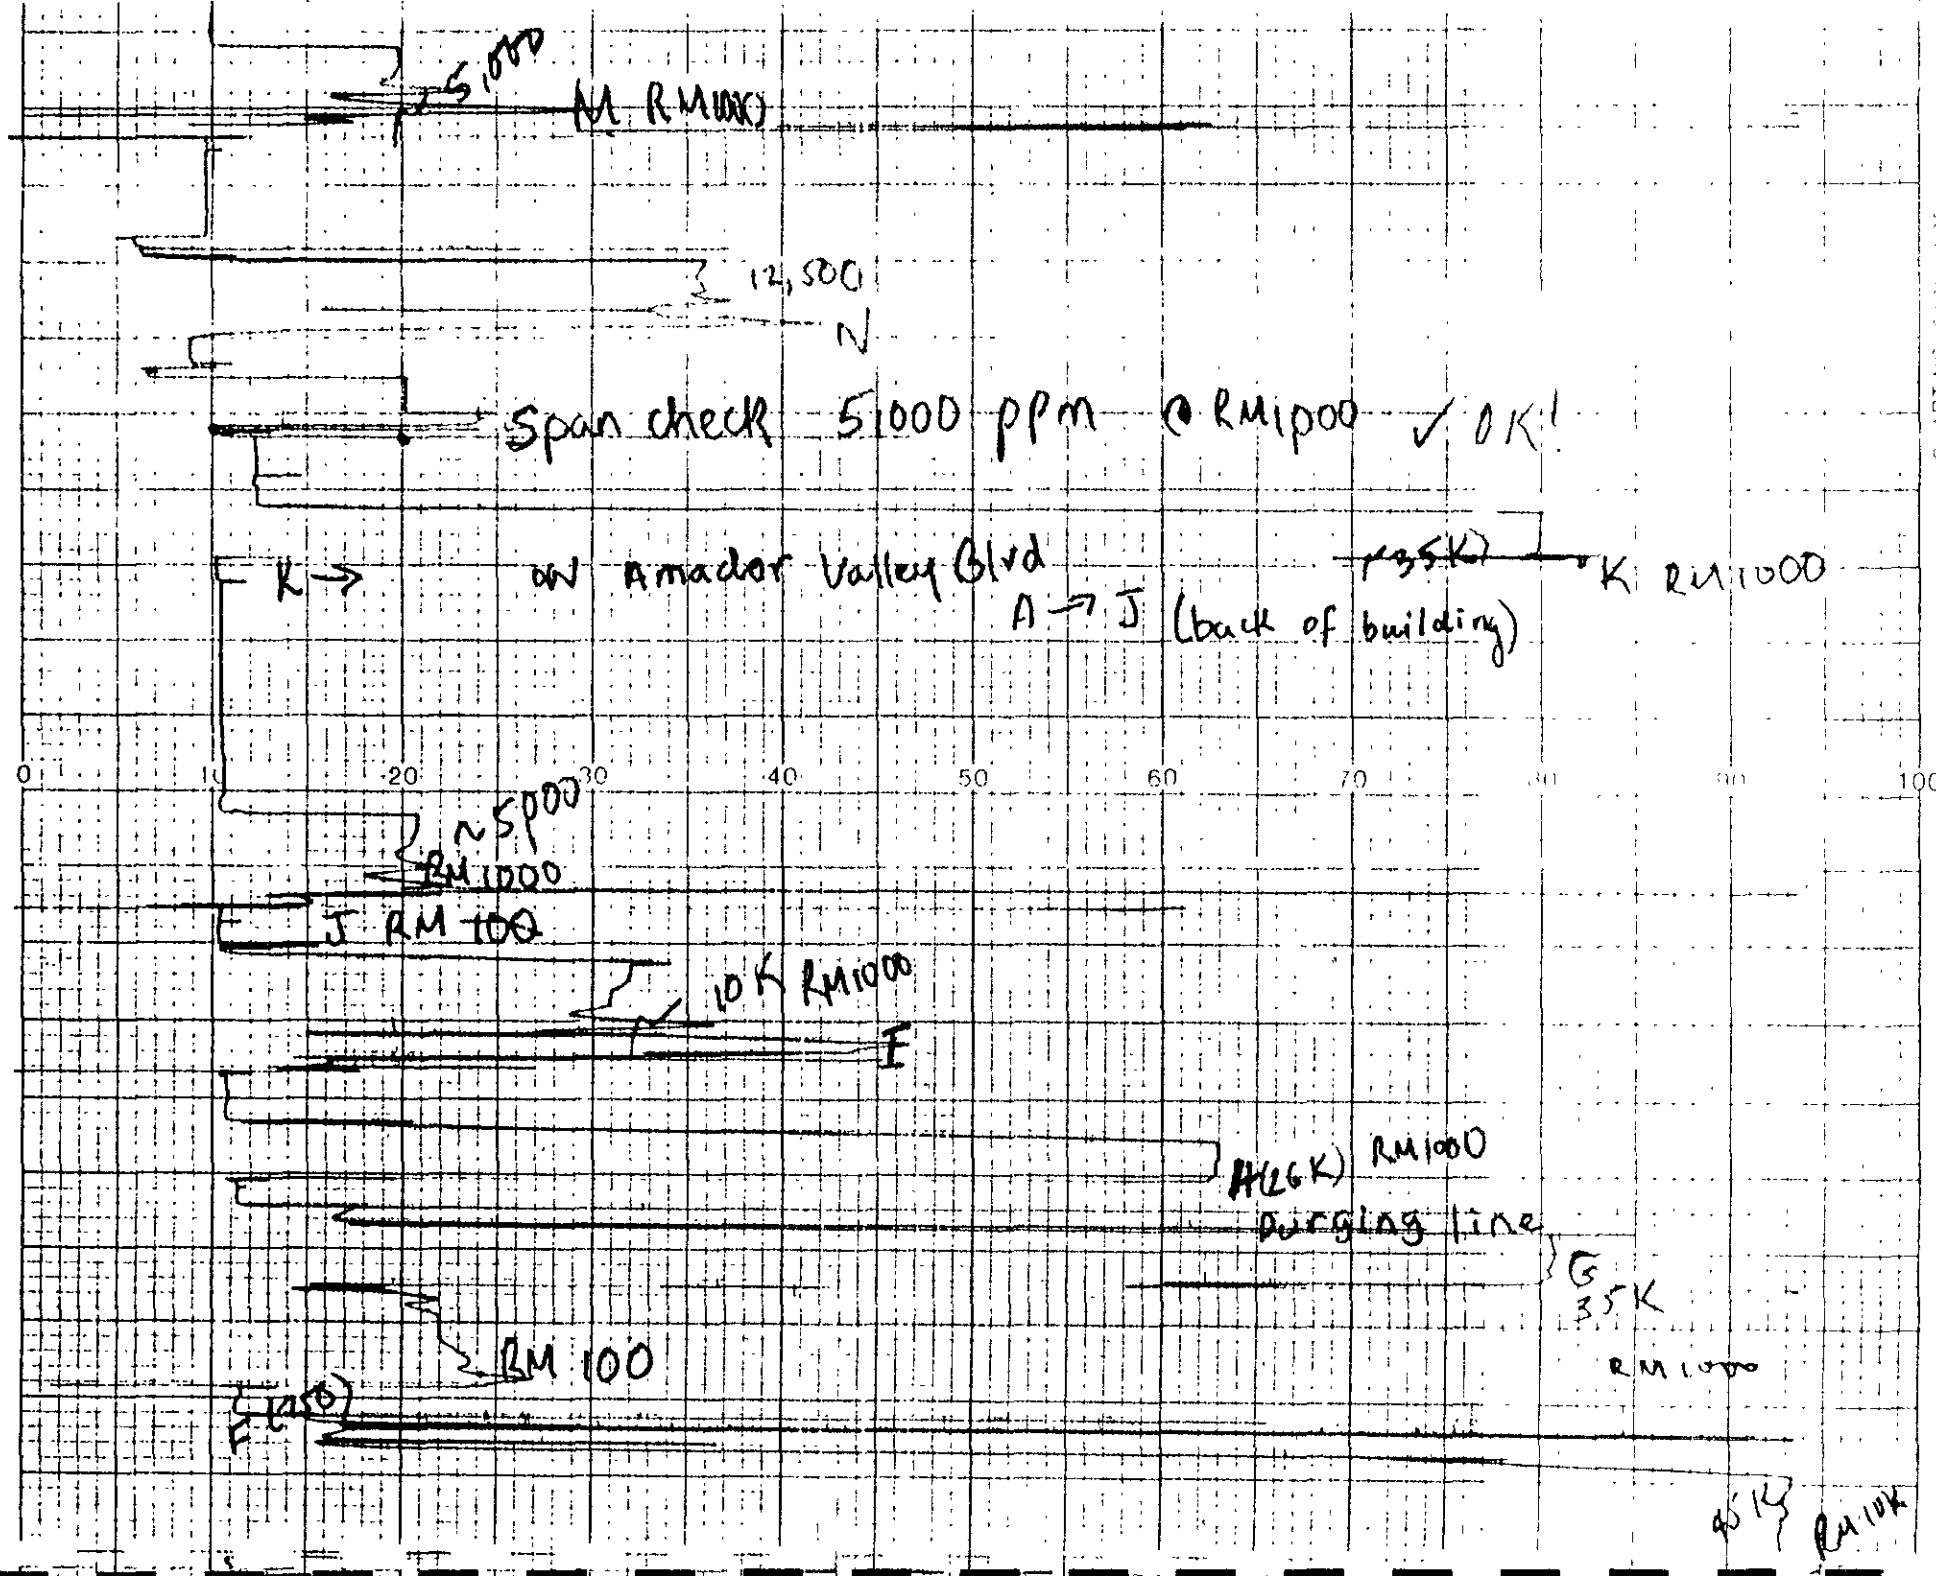 5,000
M RM1000
12,500
N
Span check 5,000 ppm @ RM1000 ✓ OK!
K → ON Amador Valley Blvd (~35K) K RM1000
A → J (back of building)
0 10 20 30 40 50 60 70 80 90 100
~5000
RM1000
J RM 100
10K RM1000
I
H(26K) RM1000
purging line
G
35K
RM 100
RM1000
F (~50)
45K RM 10K